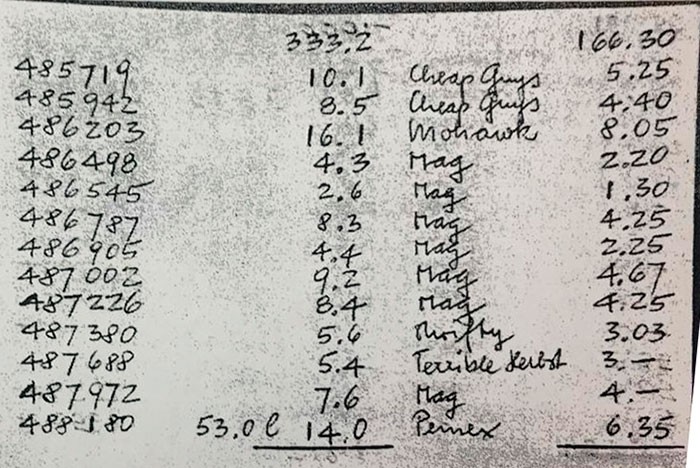 333.2 166.30
485719 10.1 Cheap Guys 5.25
485942 8.5 Cheap Guys 4.40
486203 16.1 Mohawk 8.05
486498 4.3 Mag 2.20
486545 2.6 Mag 1.30
486787 8.3 Mag 4.25
486905 4.4 Mag 2.25
487002 9.2 Mag 4.67
487226 8.4 Mag 4.25
487380 5.6 Thrifty 3.03
487688 5.4 Terrible Herbst 3.—
487972 7.6 Mag 4.—
488180 53.0 l 14.0 Pemex 6.35